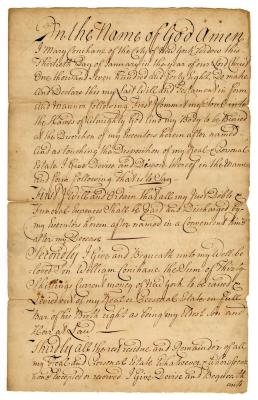 In the Name of God Amen
I Mary Conihane of the City of New York Widow this
Thirtieth Day of January in the year of our Lord Christ
One thousand seven hundred and forty Eight, Do make
and Declare this my Last Will and Testament in form
and manner following First I commit my Soul into
the Hands of Almighty God and my Body to be Buried
at the Discretion of my Executors herein after named
and as touching the Disposition of my Real & Personal
Estate I Give Devise and Dispose thereof in the Manner
and form following That is to Say
First I Will and Ordain that all my Just Debts &
Funeral Expences Shall be Paid and Discharged by
my Executors herein after named in a Convenient time
after my Decease
Secondly I Give and Bequeath unto my Well be
loved Son William Conihane the Sum of Thirty
Shillings Current money of New York to be raised &
Paid out of my Real & Personal Estate in full
Bar of his Birth right as being my Eldest Son and
Heir at Law
Thirdly all the rest residue and Remainder of all
my Real and Personal Estate whatsoever &
before received I Give Devise and Bequeath
unto